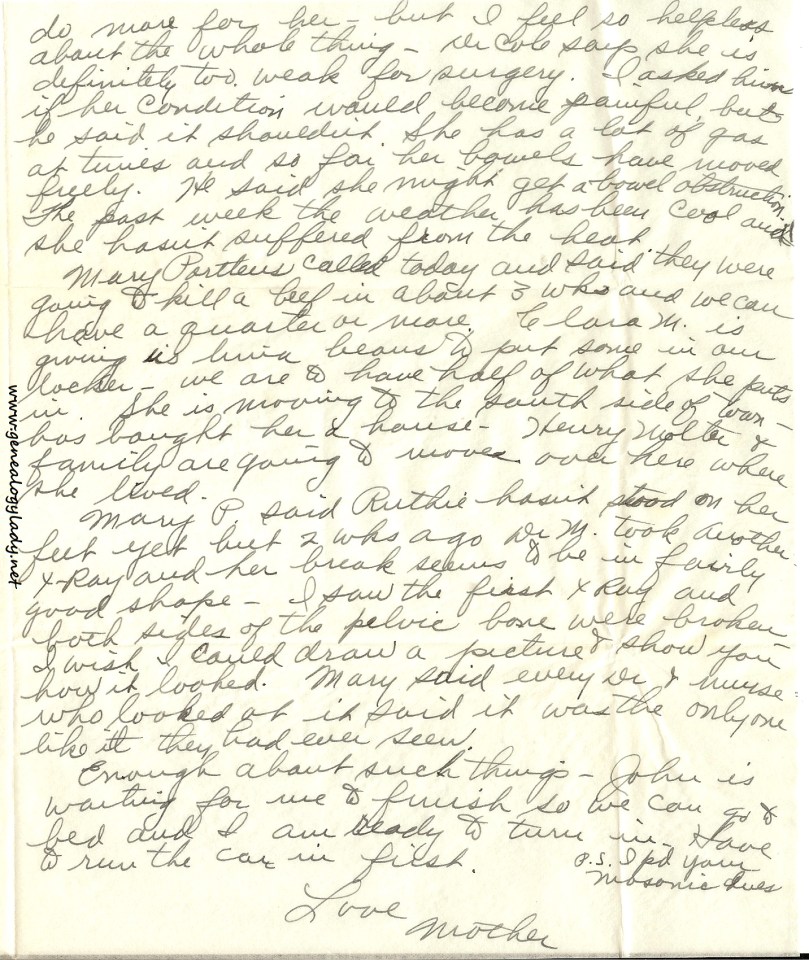 do more for her – but I feel so helpless
about the whole thing – Dr Cole says she is
definitely too weak for surgery. I asked him
if her condition would become painful, but
he said it shouldn't. She has a lot of gas
at times and so far her bowels have moved
freely. He said she might get a bowel obstruction.
The past week the weather has been cool and
she hasn't suffered from the heat.
Mary Porteus called today and said they were
going to kill a beef in about 3 wks and we can
have a quarter or more. Clara M. is
giving us lima beans to put some in our
locker – we are to have half of what she puts
in. She is moving to the south side of town –
has bought her a house – Henry Molter &
family are going to move over here where
she lived.
Mary P. said Ruthie hasn't stood on her
feet yet but 2 wks ago Dr M. took another
X-Ray and her break seems to be in fairly
good shape – I saw the first X Ray and
both sides of the pelvic bone were broken –
I wish I could draw a picture & show you
how it looked. Mary said every Dr & nurse
who looked at it said it was the only one
like it they had ever seen.
Enough about such things – John is
waiting for me to finish so we can go to
bed and I am ready to turn in – Have
to run the car in first.
P.S. I pd your
Masonic dues
Love
Mother
www.genealogylady.net